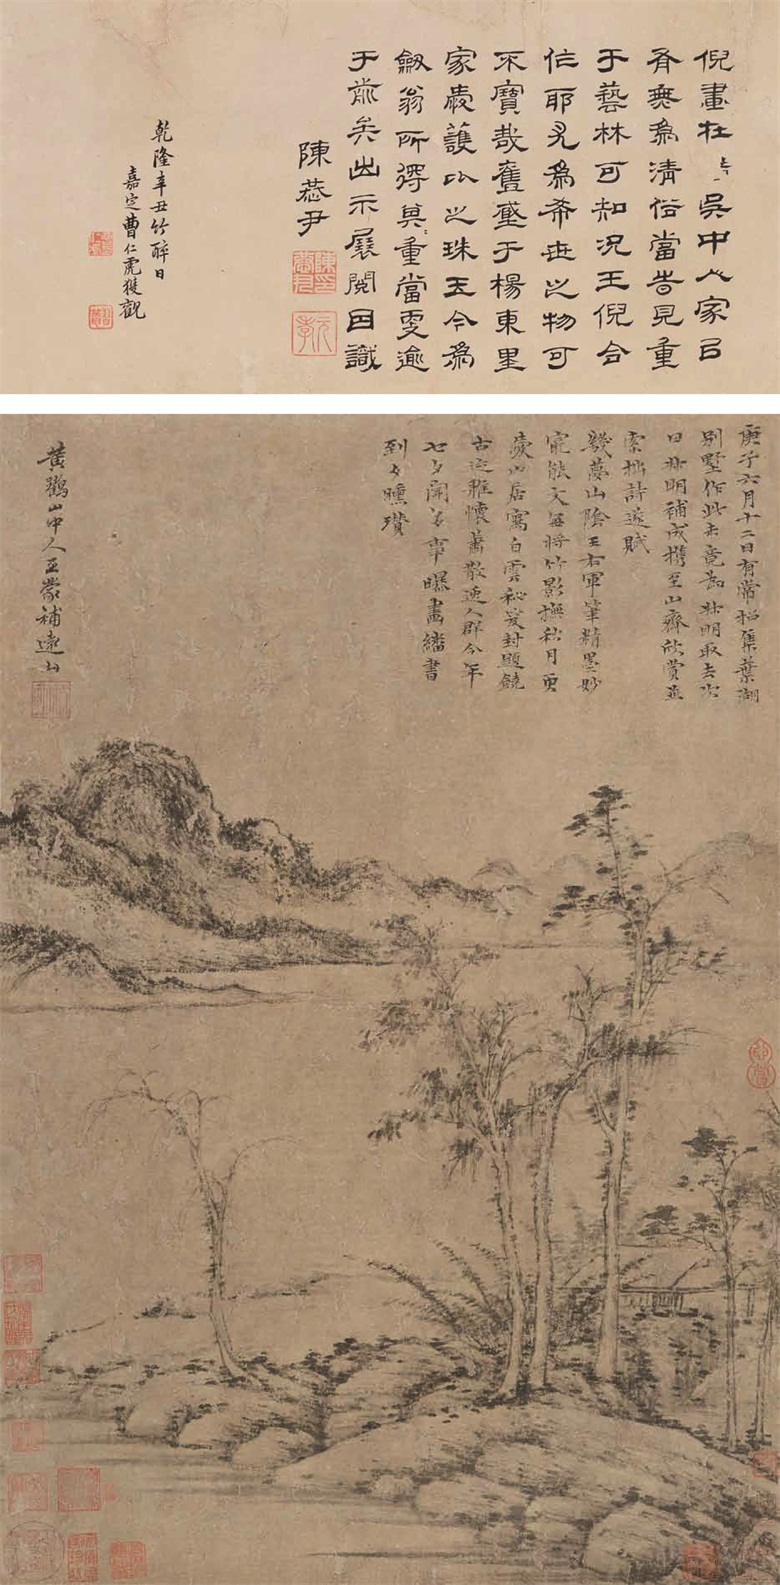 倪畫在昔吳中人家㠯
有無爲清俗當時見重
于藝林可知况王倪合
作耶尤爲希世之物可
不寶哉舊于楊東里
家嚴護比之珠玉今爲
劔翁所得其重當更逾
于前矣出示展閱因識
陳恭尹
元孝
乾隆辛丑竹醉日
嘉定曹仁虎獲觀
庚子六月十二日有常招集葉湖
別墅作此未竟爲叔明取去次
日叔明補成攜至山齋欣賞並
索拙詩遂賦
幾夢山陰王右軍筆精墨妙
㝡能文每將竹影撫秋月更
愛山居寫白雲秘笈封題饒
古迹雅懷蕭散逸人群今年
七夕聞多事曝畫繙書
到夕曛瓚
黃鶴山中人王蒙補遠山